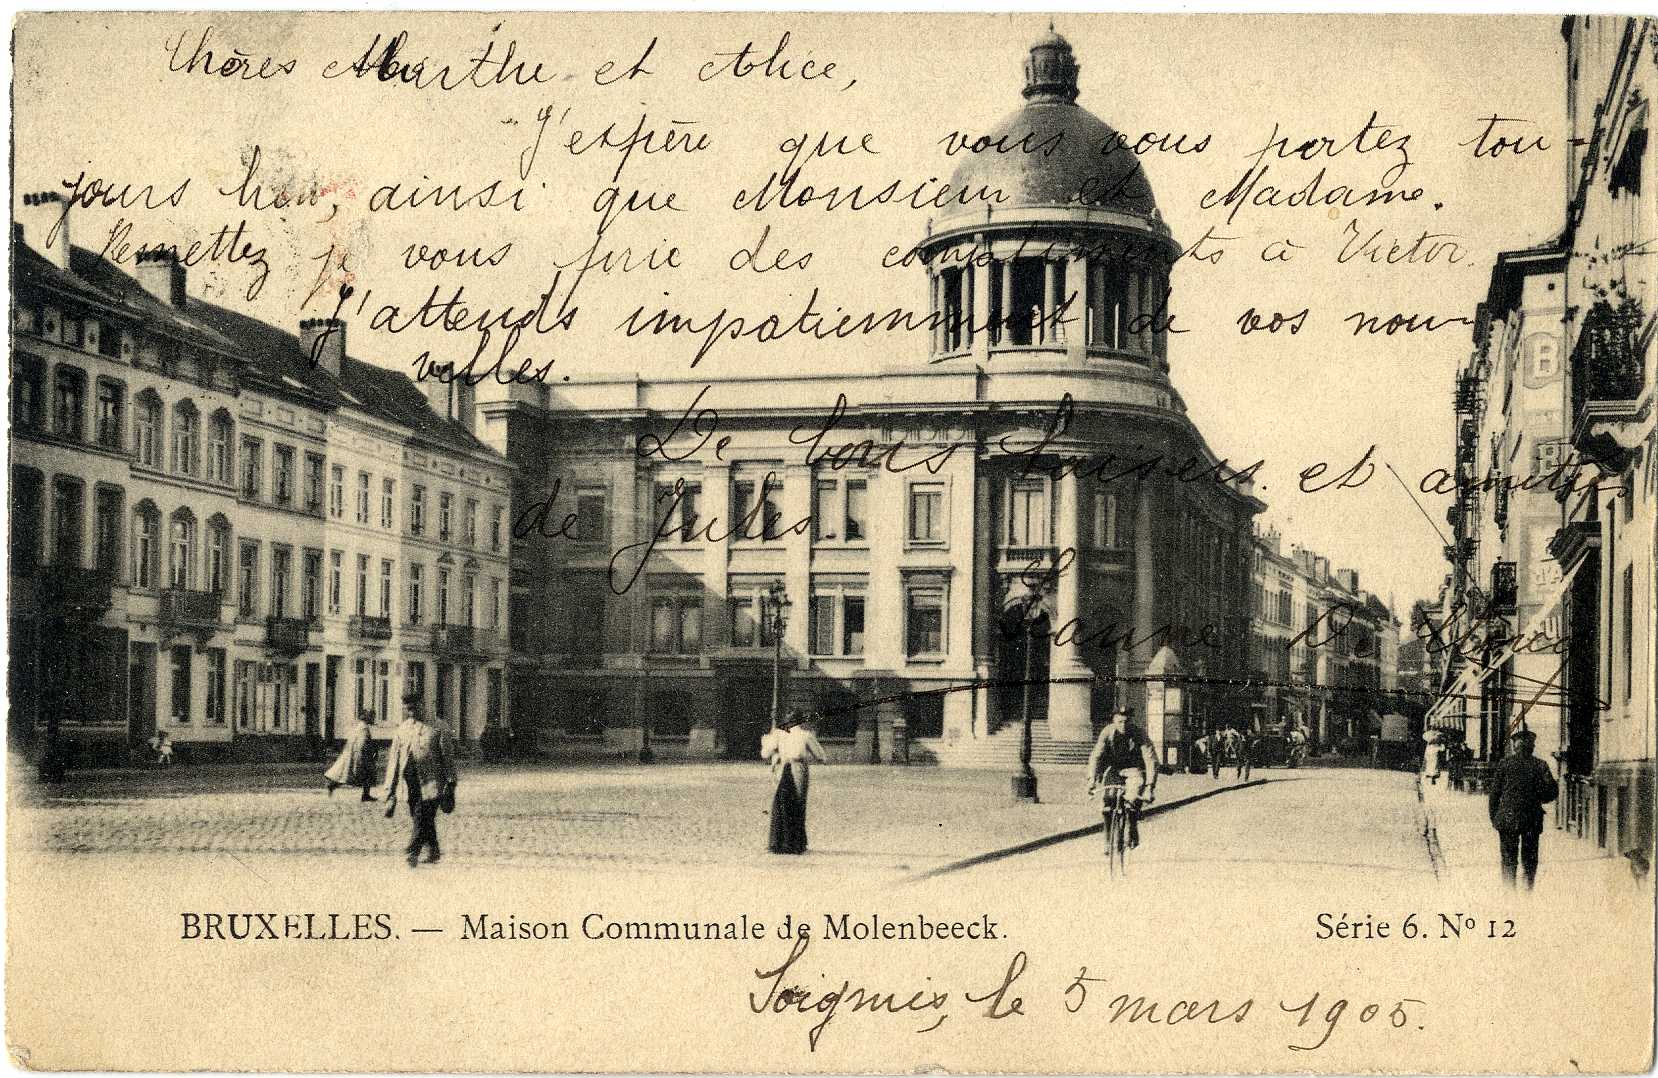 Chères Marthe et Alice,
J'espère que vous vous portez tou-
jours bien, ainsi que Monsieur et Madame.
Remettez je vous prie des compliments à Victor.
J'attends impatiemment de vos nou-
velles.
De bons baisers et amitiés
de Jules.
Jeanne De
BRUXELLES. — Maison Communale de Molenbeeck. Série 6. Nº 12
Soignies, le 5 mars 1905.